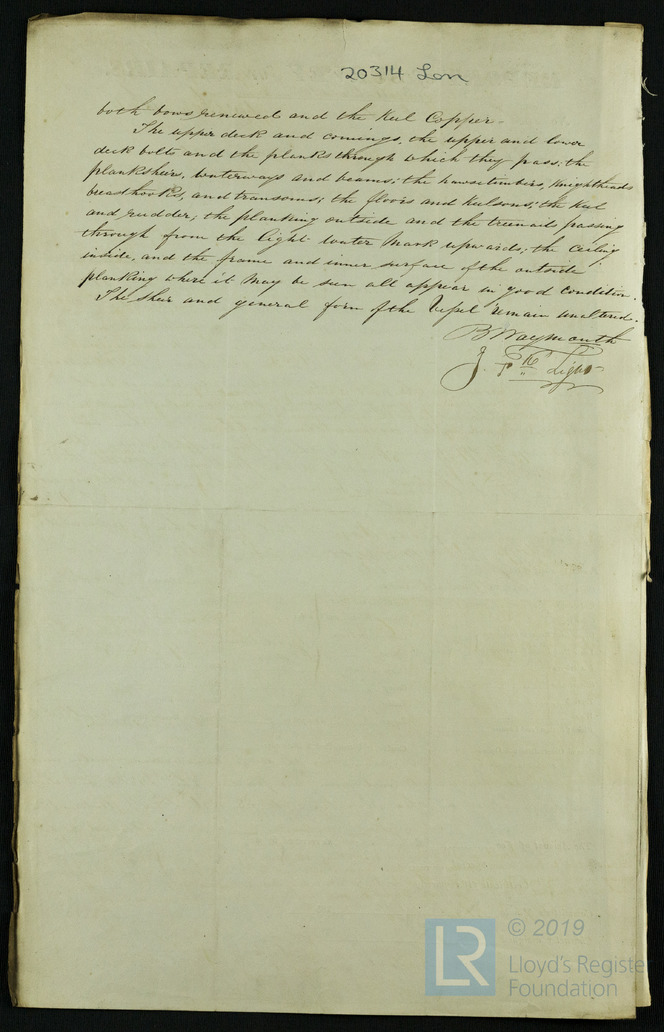 20314 Lon
both bows renewed and the Keel Copper.
The upper deck and comings, the upper and lower
deck bolts and the planks through which they pass, the
planksheirs, waterways and beams; the hawsetimbers, Knightheads
breasthooks, and transoms; the floors and keelsons; the Keel
and rudder; the planking outside and the treenails passing
through from the light water mark upwards; the Ceiling
inside, and the frame and inner surface of the outside
planking where it may be seen all appear in good condition.
The sheer and general form of the Vessel remain unaltered.
B Waymouth
J.
LR © 2019
Lloyd's Register
Foundation